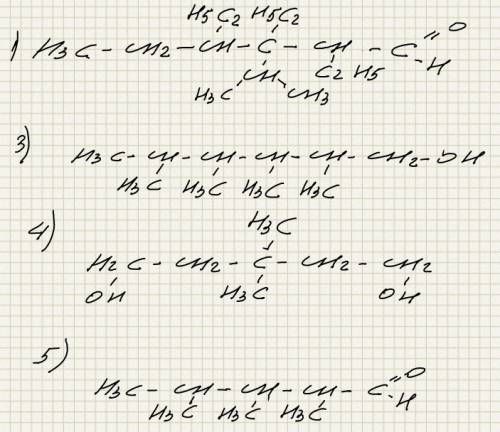 H5C2 H5C2
1) H3C - CH2 - CH - C - CH - C = O
CH C2H5 H
H3C CH3
3) H3C - CH - CH - CH - CH - CH2 - OH
H3C H3C H3C H3C
4) H3C
H2C - CH2 - C - CH2 - CH2
OH H3C OH
5)
H3C - CH - CH - CH - C = O
H3C H3C H3C H